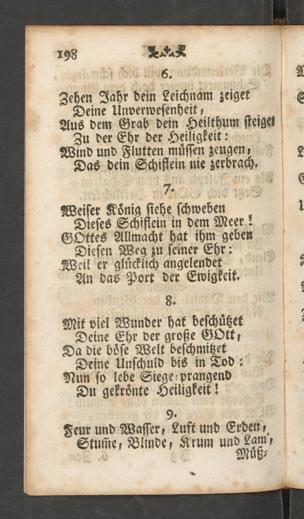 198
6.
Zehen Jahr dein Leichnam zeiget
Deine Unverwesenheit,
Aus dem Grab dein Heilthum steiget
Zu der Ehr der Heiligkeit:
Wind und Flutten müssen zeugen,
Das dein Schiflein nie zerbrach.
7.
Weiser König siehe schweben
Dieses Schiflein in dem Meer!
GOttes Allmacht hat ihm geben
Diesen Weg zu seiner Ehr:
Weil er glücklich angelendet
An das Port der Ewigkeit.
8.
Mit viel Wunder hat beschützet
Deine Ehr der große GOtt,
Da die böse Welt beschmitzet
Deine Unschuld bis in Tod:
Nun so lebe Siege-prangend
Du gekrönte Heiligkeit!
9.
Feur und Wasser, Luft und Erden,
Stum̅e, Blinde, Krum und Lam,
Müß-